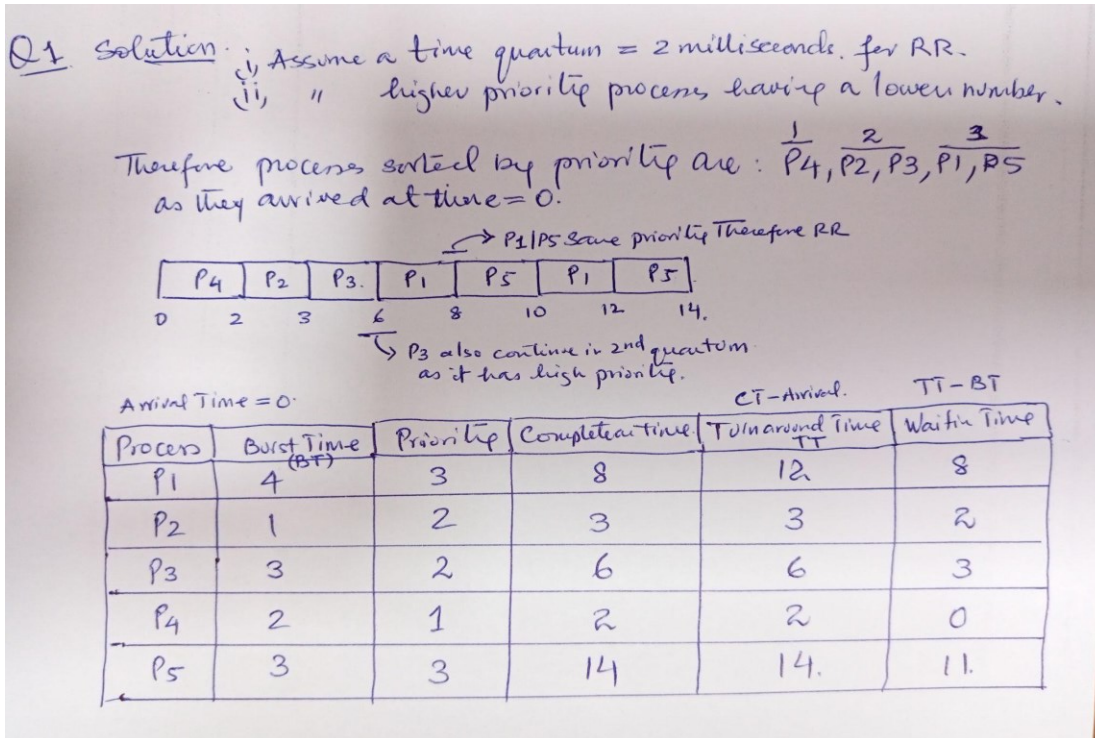 Q1 Solution. i, Assume a time quantum = 2 milliseconds. for RR.
ii, " higher priority process having a lower number.
1 2 3
Therefore process sorted by priority are : P4, P2, P3, P1, P5
as they arrived at time = 0.
→ P1/P5 Same priority Therefore RR
P4 P2 P3. P1 P5 P1 P5
0 2 3 6 8 10 12 14.
↳ P3 also continue in 2nd quantum
as it has high priority.
Arrival Time = 0. CT-Arrival. TT-BT
Process Burst Time (BT) Priority Completion time. Turnaround Time TT Waitin Time
P1 4 3 8 12 8
P2 1 2 3 3 2
P3 3 2 6 6 3
P4 2 1 2 2 0
P5 3 3 14 14. 11.